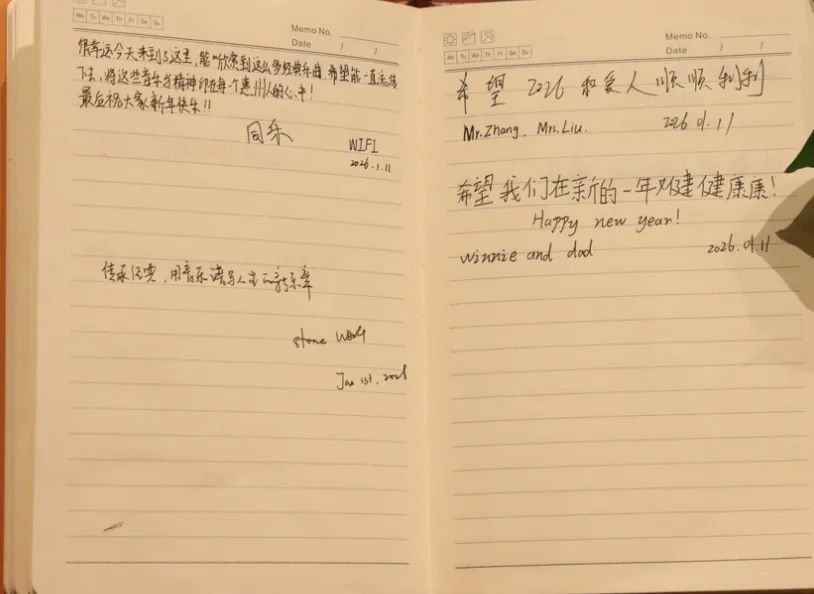 Mo Tu We Th Fr Sa Su
Memo No.
Date / /
很幸运今天来到了这里,能欣赏到这么多经典乐曲.希望能一直流传
下去,将这些音乐与精神印在每个惠州人的心中!
最后祝大家新年快乐!!
同乐
WIFI
2026.1.11
传承经典,用音乐谱写人生的新乐章
stone
Jan 1st, 2026
Mo Tu We Th Fr Sa Su
Memo No.
Date / /
希望 2026 和爱人顺顺利利
Mr.Zhang. Mrs.Liu. 2026 01.11
希望我们在新的一年健健康康!
Happy new year!
winnie and dad 2026.01.11